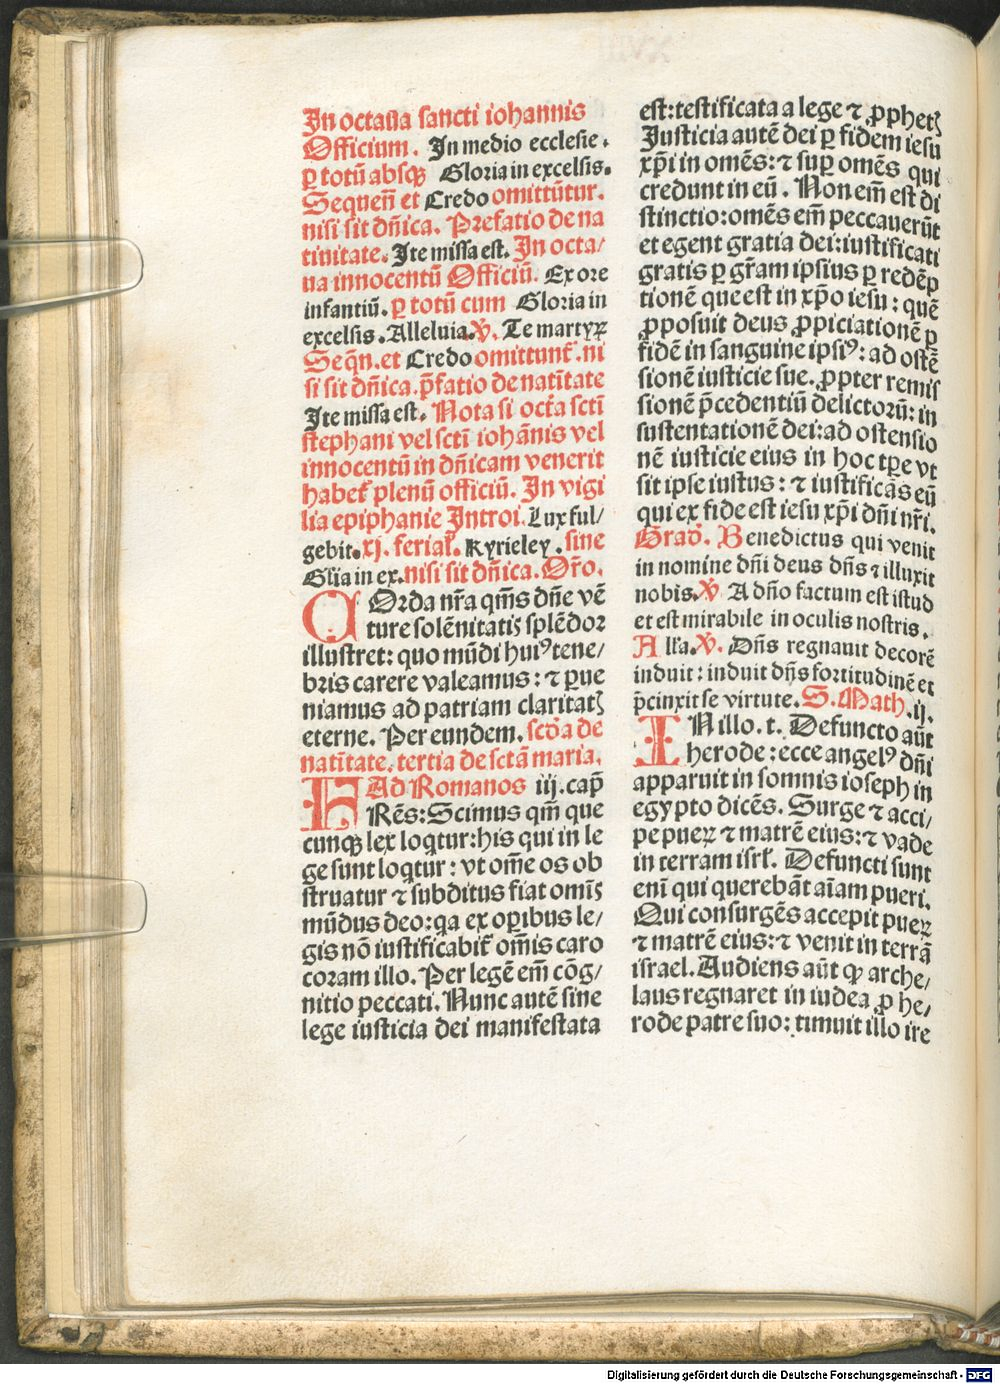 In octaua sancti iohannis
Officium. In medio ecclesie.
ꝑ totū absqꝫ Gloria in excelsis.
Sequen̄ et Credo omittūtur.
nisi sit dn̄ica. Prefatio de na
tiuitate. Ite missa est. In octa/
ua innocentū Officiū. Ex ore
infantiū. ꝑ totū cum Gloria in
excelsis. Alleluia. ℣. Te martyꝝ
Seq̄n. et Credo omittunt᷑. ni
si sit dn̄ica. p̄fatio de natītate
Ite missa est. Nota si octa sctī
stephani vel sctī ioh̄annis vel
innocentū in dn̄icam venerit
habet᷑ plenū officiū. In vigi
lia epiphanie Introi. Lux ful/
gebit. xj. ferial᷑. Kyrieley. sine
Gl̄ia in ex. nisi sit dn̄ica. Or̄o.
COrda nr̄a qm̄s dn̄e vē
ture solēnitatis splēdoꝛ
illustret: quo mūdi huiꝰ tene/
bris carere valeamus: ⁊ ꝑue
niamus ad patriam claritatꝭ
eterne. Per eundem. scd̄a de
natītate. tertia de sctā maria.
FAd Romanos iij. cap̄
Rēs: Scimus qm̄ que
cunqꝫ lex loqtur: his qui in le
ge sunt loqtur: vt om̄e os ob
struatur ⁊ subditus fiat omīs
mūdus deo: qa ex oꝑibus le/
gis nō iustificabit᷑ om̄is caro
coram illo. Per legē em̄ cōg/
nitio peccati. Nunc autē sine
lege iusticia dei manifestata
est: testificata a lege ⁊ ꝓphetꝭ
Iusticia autē dei ꝑ fidem iesu
xp̄i in omēs: ⁊ suꝑ omēs qui
credunt in eū. Non em̄ est di
stinctio: omēs em̄ peccauerūt
et egent gratia dei: iustificati
gratis ꝑ gr̄am ipsius ꝑ redēp
tionē que est in xp̄o iesu: quē
ꝓposuit deus ꝓpiciationē ꝑ
fidē in sanguine ipsiꝰ: ad ostē
sionē iusticie sue. ꝓpter remis
sionē p̄cedentiū delictorū: in
sustentationē dei: ad ostensio
nē iusticie eius in hoc tꝑe vt
sit ipse iustus: ⁊ iustificās eū
qui ex fide est iesu xp̄i dn̄i nr̄i.
Grad̄. Benedictus qui venit
in nomine dn̄i deus dn̄s ⁊ illuxit
nobis. ℣ A dn̄o factum est istud
et est mirabile in oculis nostris.
All̄a. ℣. Dn̄s regnauit decorē
induit: induit dn̄s fortitudinē et
p̄cinxit se virtute. S. Math. ij.
IN illo. t. Defuncto aūt
herode: ecce angelꝰ dn̄i
apparuit in somnis ioseph in
egypto dicēs. Surge ⁊ acci/
pe pueꝝ ⁊ matrē eius: ⁊ vade
in terram isrl᷑. Defuncti sunt
eni qui querebāt aīam pueri.
Qui consurgēs accepit pueꝝ
⁊ matrē eius: ⁊ venit in terrā
israel. Audiens aūt qꝫ arche/
laus regnaret in iudea ꝓ he/
rode patre suo: timuit illo ire
Digitalisierung gefördert durch die Deutsche Forschungsgemeinschaft - DFG